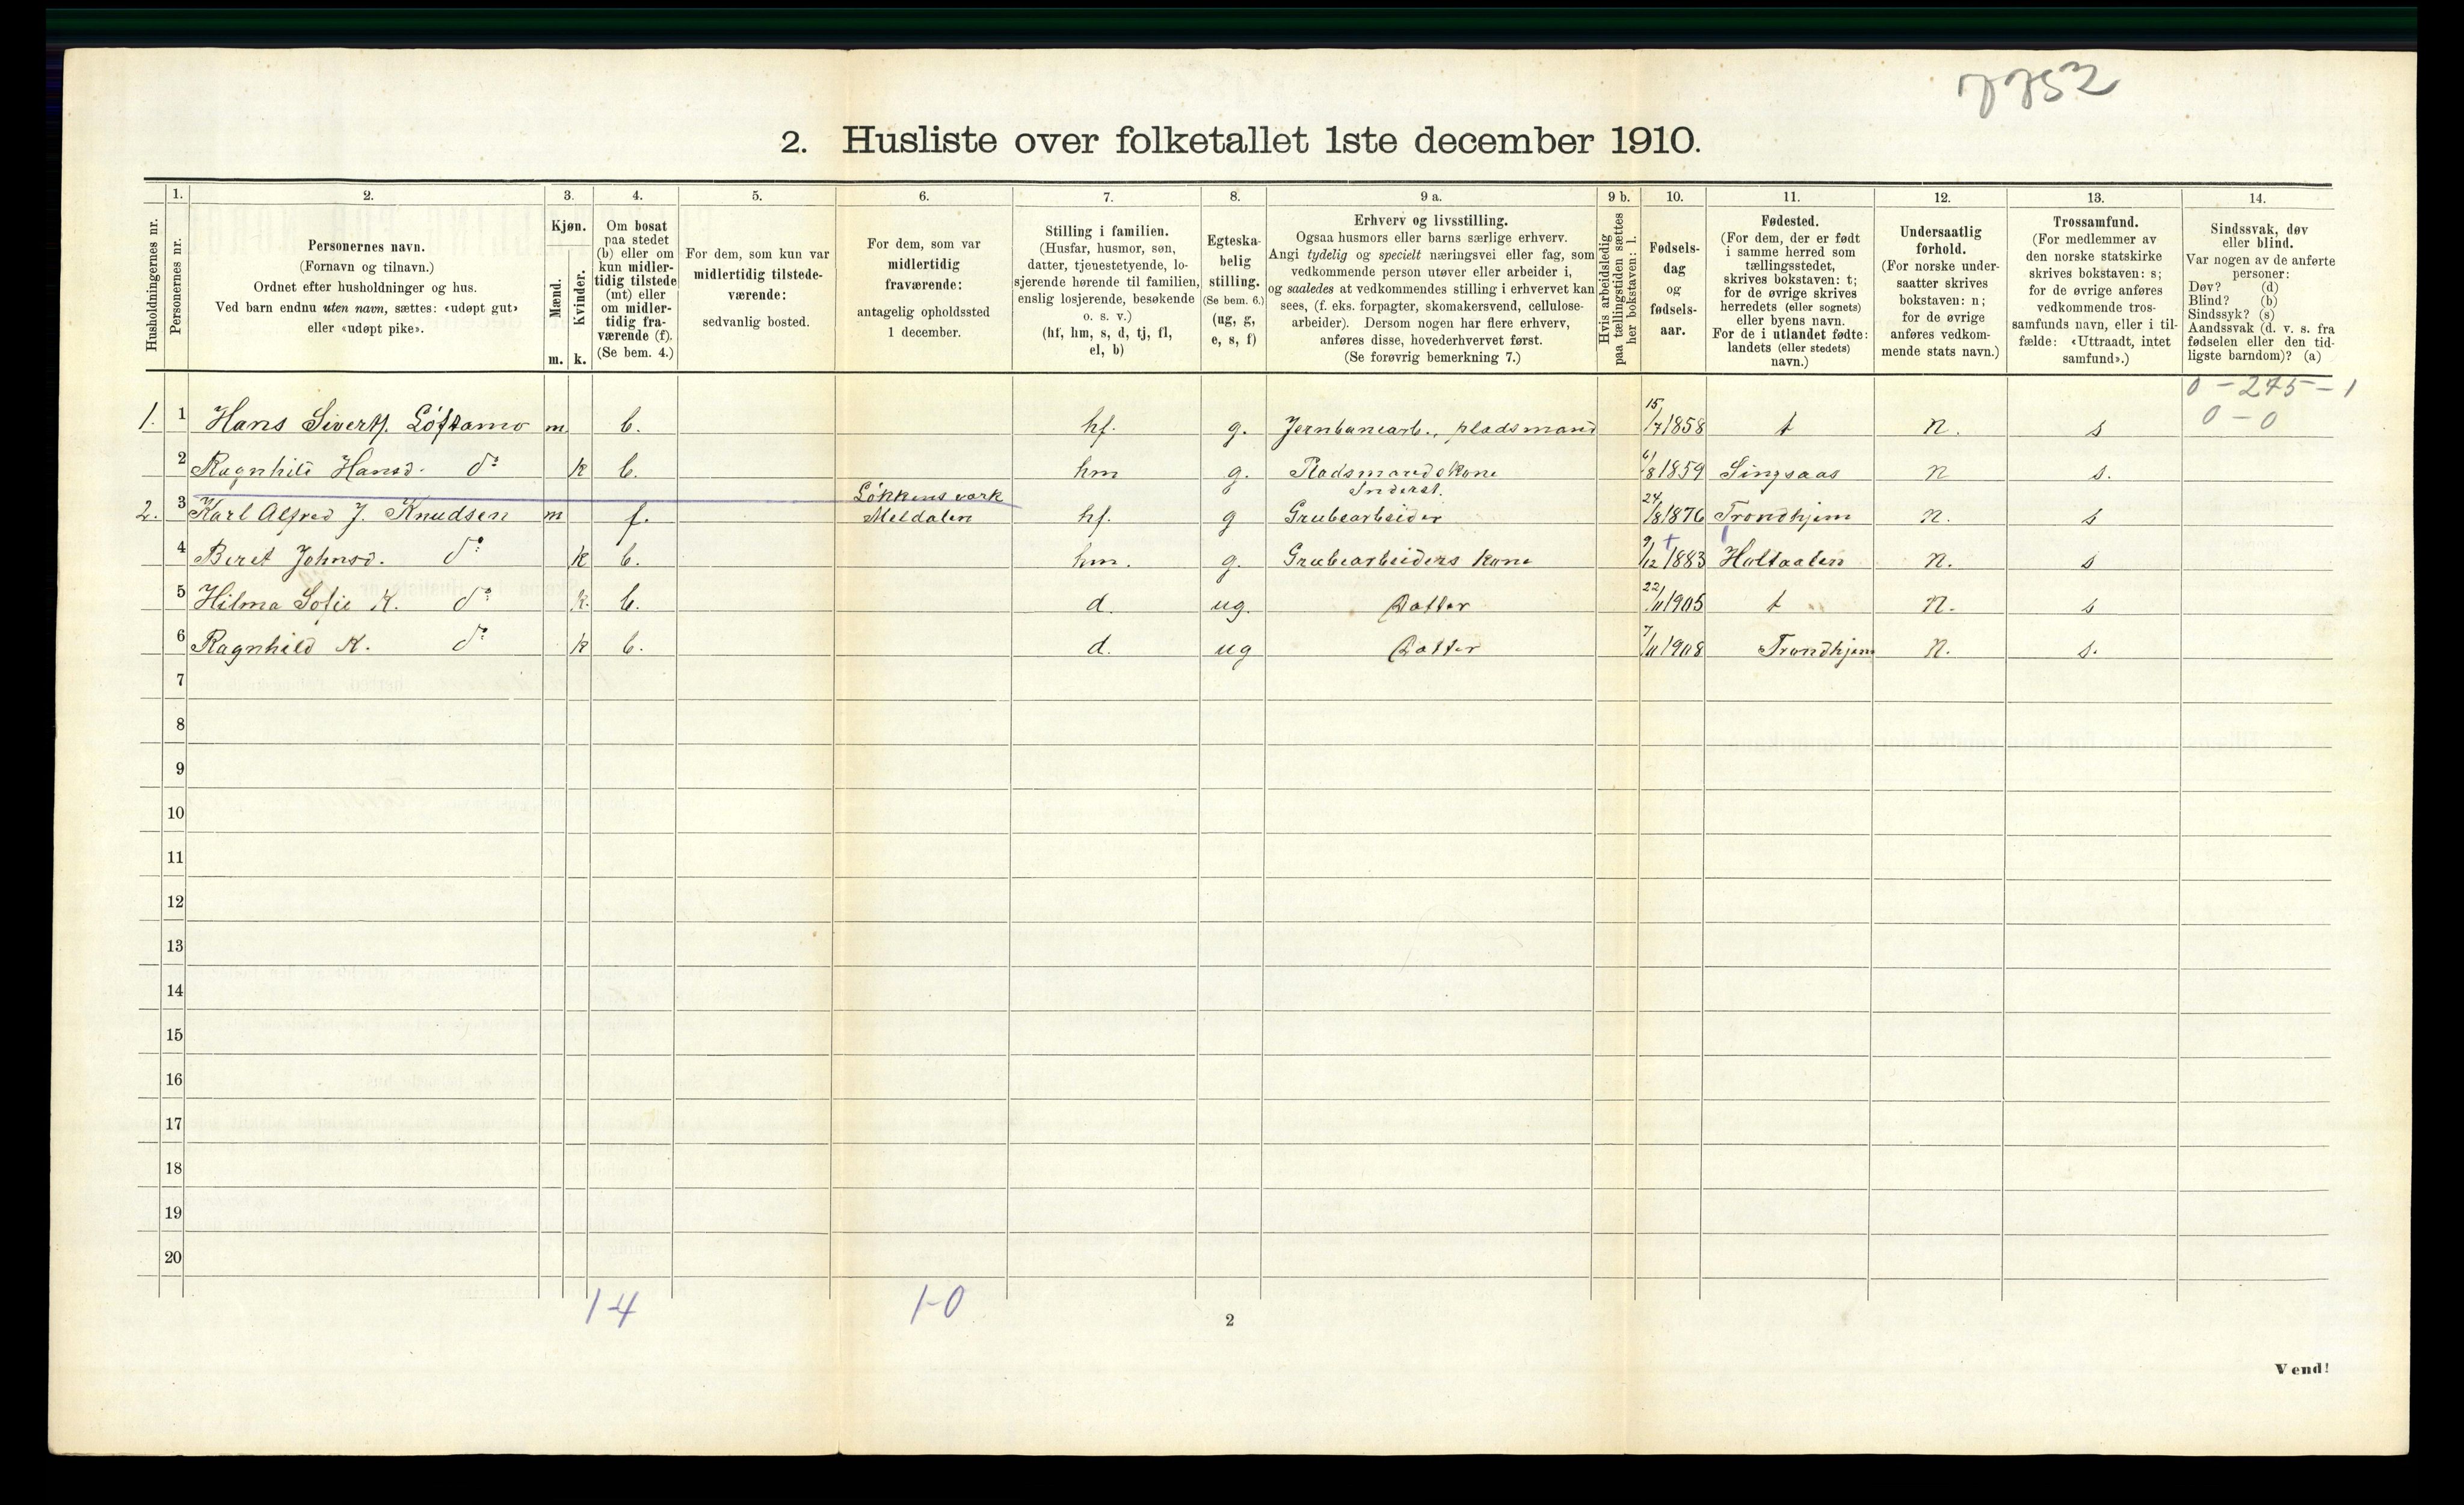 7752
2. Husliste over folketallet 1ste december 1910.
1. 2. 3. 4. 5. 6. 7. 8. 9 a. 9 b. 10. 11. 12. 13. 14.
Husholdningernes nr.
Personernes nr.
Personernes navn.
(Fornavn og tilnavn.)
Ordnet efter husholdninger og hus.
Ved barn endnu uten navn, sættes: «udøpt gut»
eller «udøpt pike».
Kjøn.
Mænd.
Kvinder.
m. k.
Om bosat
paa stedet
(b) eller om
kun midler-
tidig tilstede
(mt) eller
om midler-
tidig fra-
værende (f).
(Se bem. 4.)
For dem, som kun var
midlertidig tilstede-
værende:
sedvanlig bosted.
For dem, som var
midlertidig
fraværende:
antagelig opholdssted
1 december.
Stilling i familien.
(Husfar, husmor, søn,
datter, tjenestetyende, lo-
sjerende hørende til familien,
enslig losjerende, besøkende
o. s. v.)
(hf, hm, s, d, tj, fl,
el, b)
Egteska-
belig
stilling.
(Se bem. 6.)
(ug, g,
e, s, f)
Erhverv og livsstilling.
Ogsaa husmors eller barns særlige erhverv.
Angi tydelig og specielt næringsvei eller fag, som
vedkommende person utøver eller arbeider i,
og saaledes at vedkommendes stilling i erhvervet kan
sees, (f. eks. forpagter, skomakersvend, cellulose-
arbeider). Dersom nogen har flere erhverv,
anføres disse, hovederhvervet først.
(Se forøvrig bemerkning 7.)
Hvis arbeidsledig
paa tællingstiden sættes
her bokstaven: l.
Fødsels-
dag
og
fødsels-
aar.
Fødested.
(For dem, der er født
i samme herred som
tællingsstedet,
skrives bokstaven: t;
for de øvrige skrives
herredets (eller sognets)
eller byens navn.
For de i utlandet fødte:
landets (eller stedets)
navn.)
Undersaatlig
forhold.
(For norske under-
saatter skrives
bokstaven: n;
for de øvrige
anføres vedkom-
mende stats navn.)
Trossamfund.
(For medlemmer av
den norske statskirke
skrives bokstaven: s;
for de øvrige anføres
vedkommende tros-
samfunds navn, eller i til-
fælde: «Uttraadt, intet
samfund».)
Sindssvak, døv
eller blind.
Var nogen av de anførte
personer:
Døv? (d)
Blind? (b)
Sindssyk? (s)
Aandssvak (d. v. s. fra
fødselen eller den tid-
ligste barndom)? (a)
0 - 245 - 1
0 - 0
1. 1 Hans Sivertf. Löftamo m b. hf. g. Jernbanearb., pladsmand 15/7 1858 t n. s
2 Ragnhild Hansd. do k b. hm g. Pladsmandskone 6/8 1859 Singsaas n s.
Løkkens værk Inderst.
2. 3 Karl Alfred J. Knudsen m f. Meldalen hf. g Grubearbeider 24/8 1876 Trondhjem n. s
4 Beret Johnsd. do k b. hm. g. Grubearbeiders kone 9/12 1883 Holtaalen n. s
5 Hilma Sofie K. do k. b. d. ug. Datter 22/11 1905 t n. s
6 Ragnhild K. do k b. d. ug Datter 7/11 1908 Trondhjem n. s.
7
8
9
10
11
12
13
14
15
16
17
18
19
20
1-4 1-0
2
Vend!